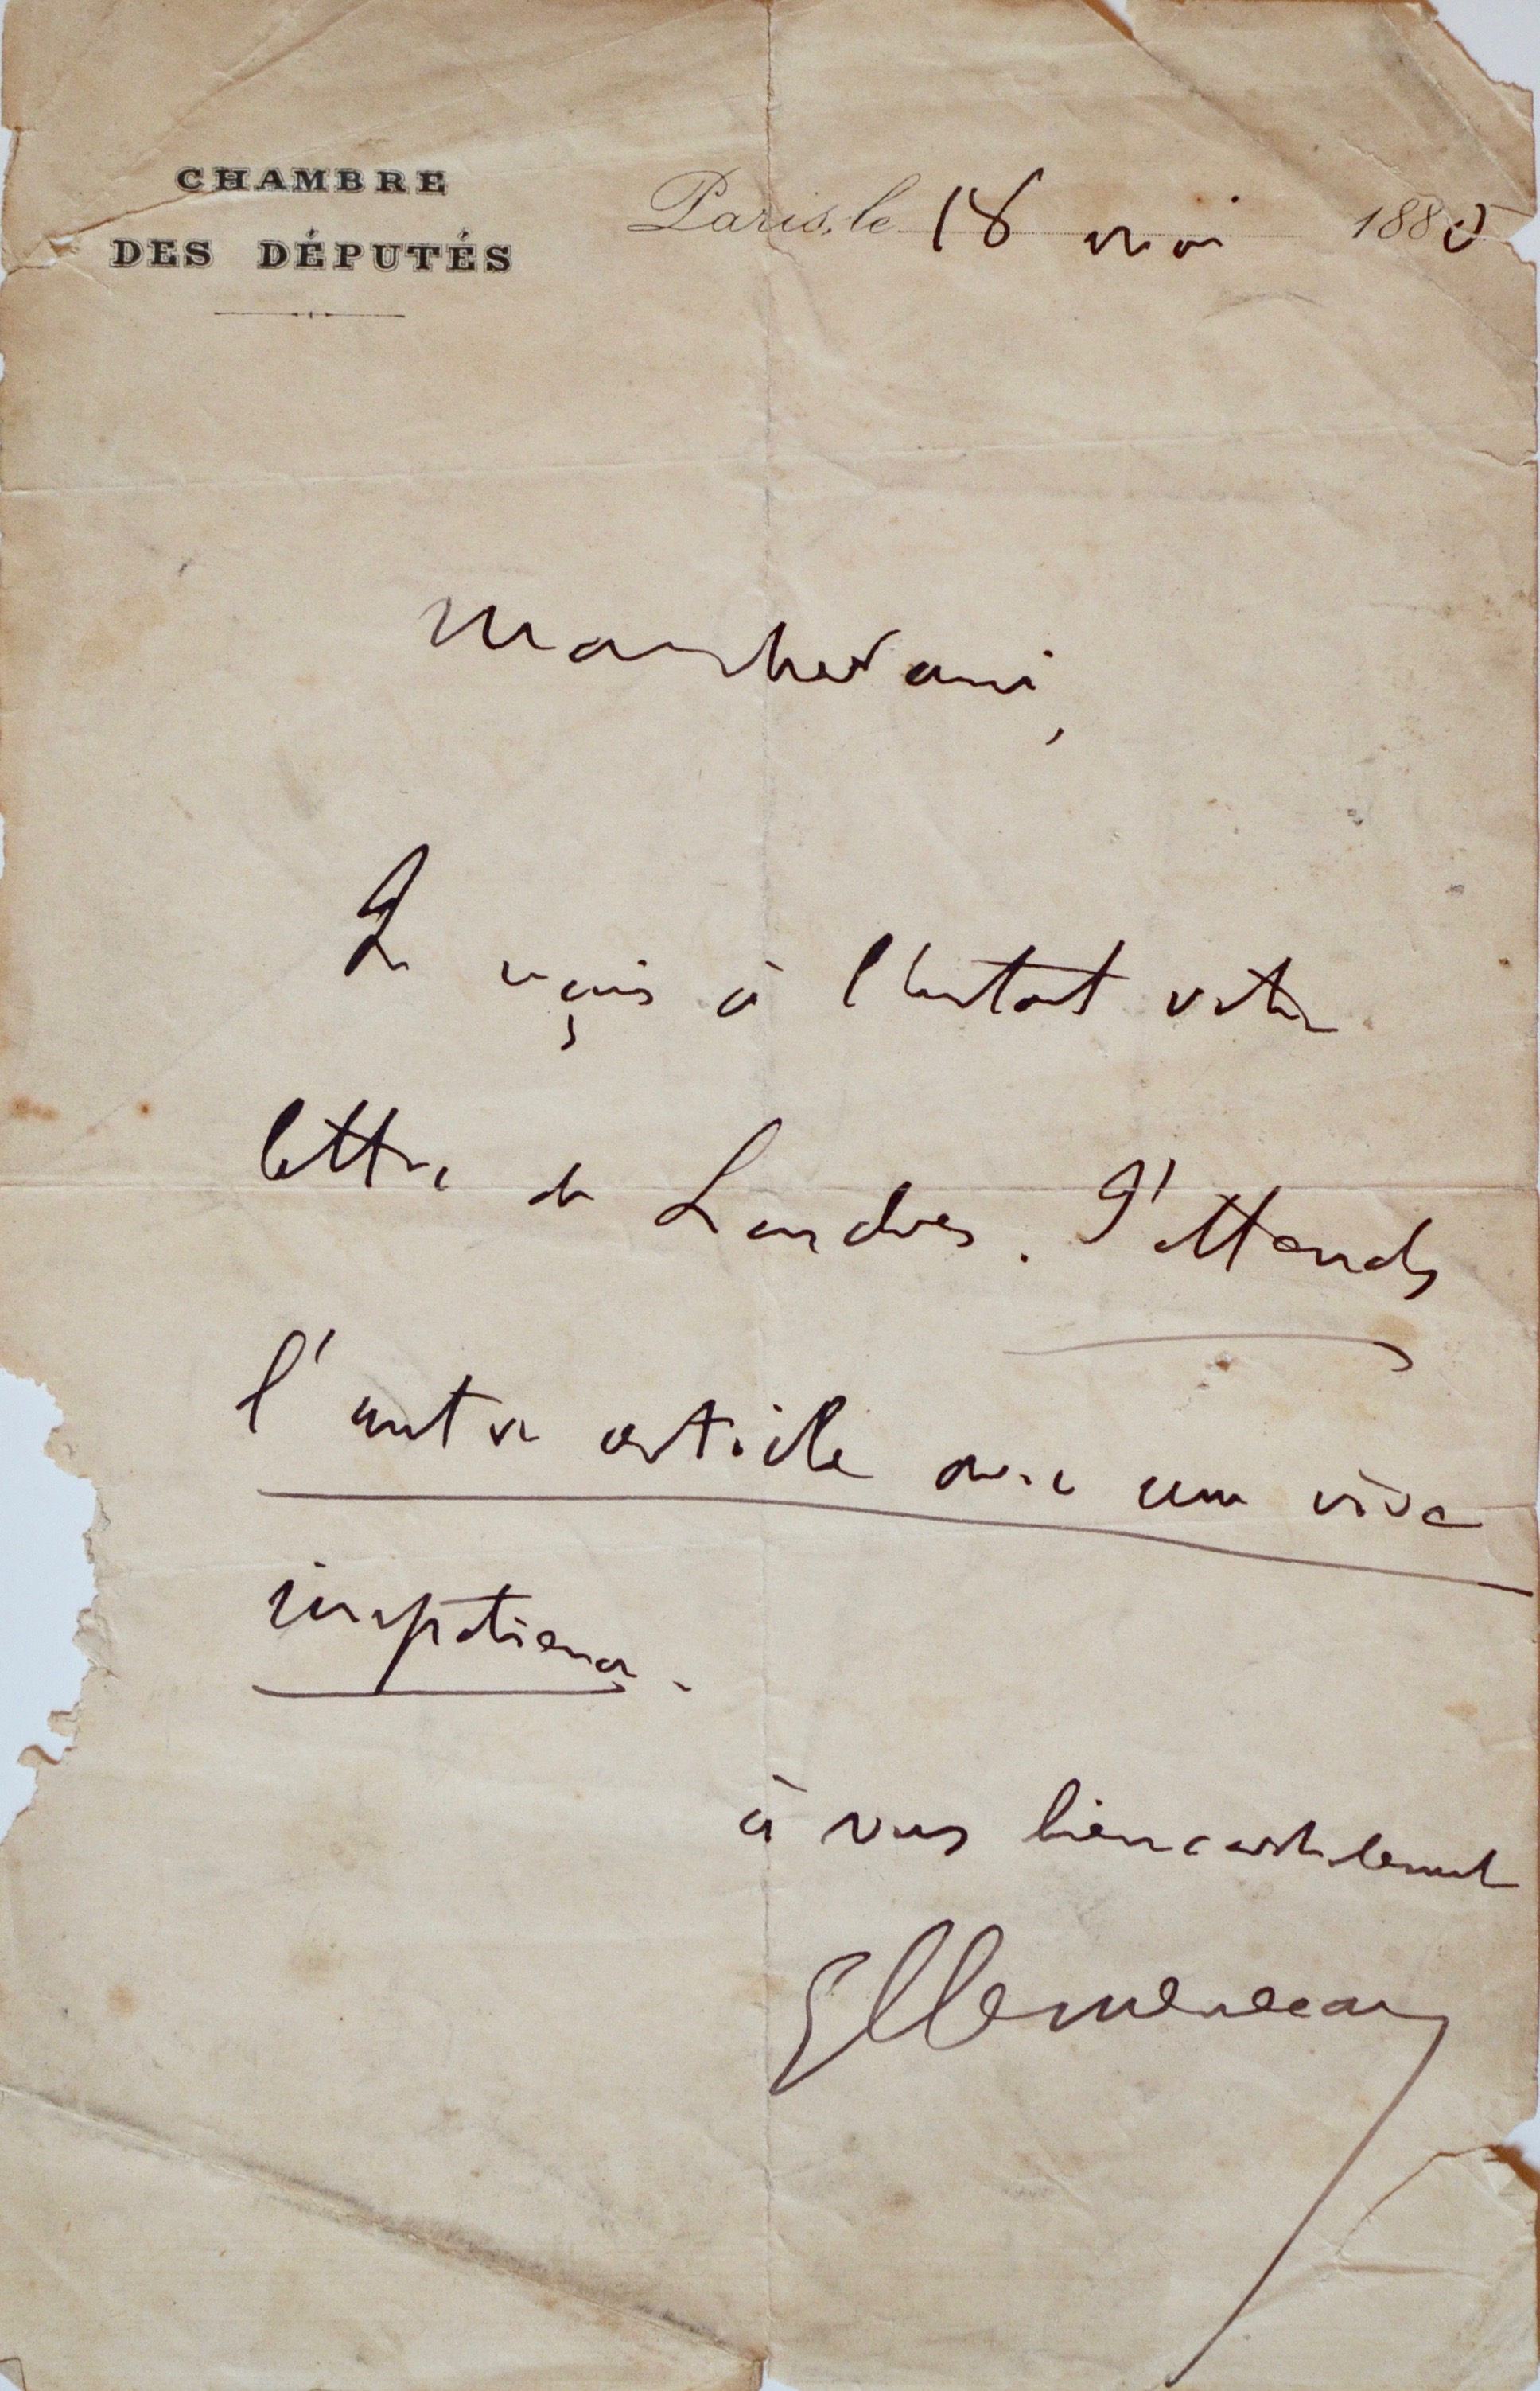 CHAMBRE
DES DÉPUTÉS
Paris, le 18 mai 1885
Mon cher ami,
Je reçois à l'instant votre
lettre de Londres. J'attends
l'autre article avec une vive
impatience.
à vous bien cordialement
GClemenceau